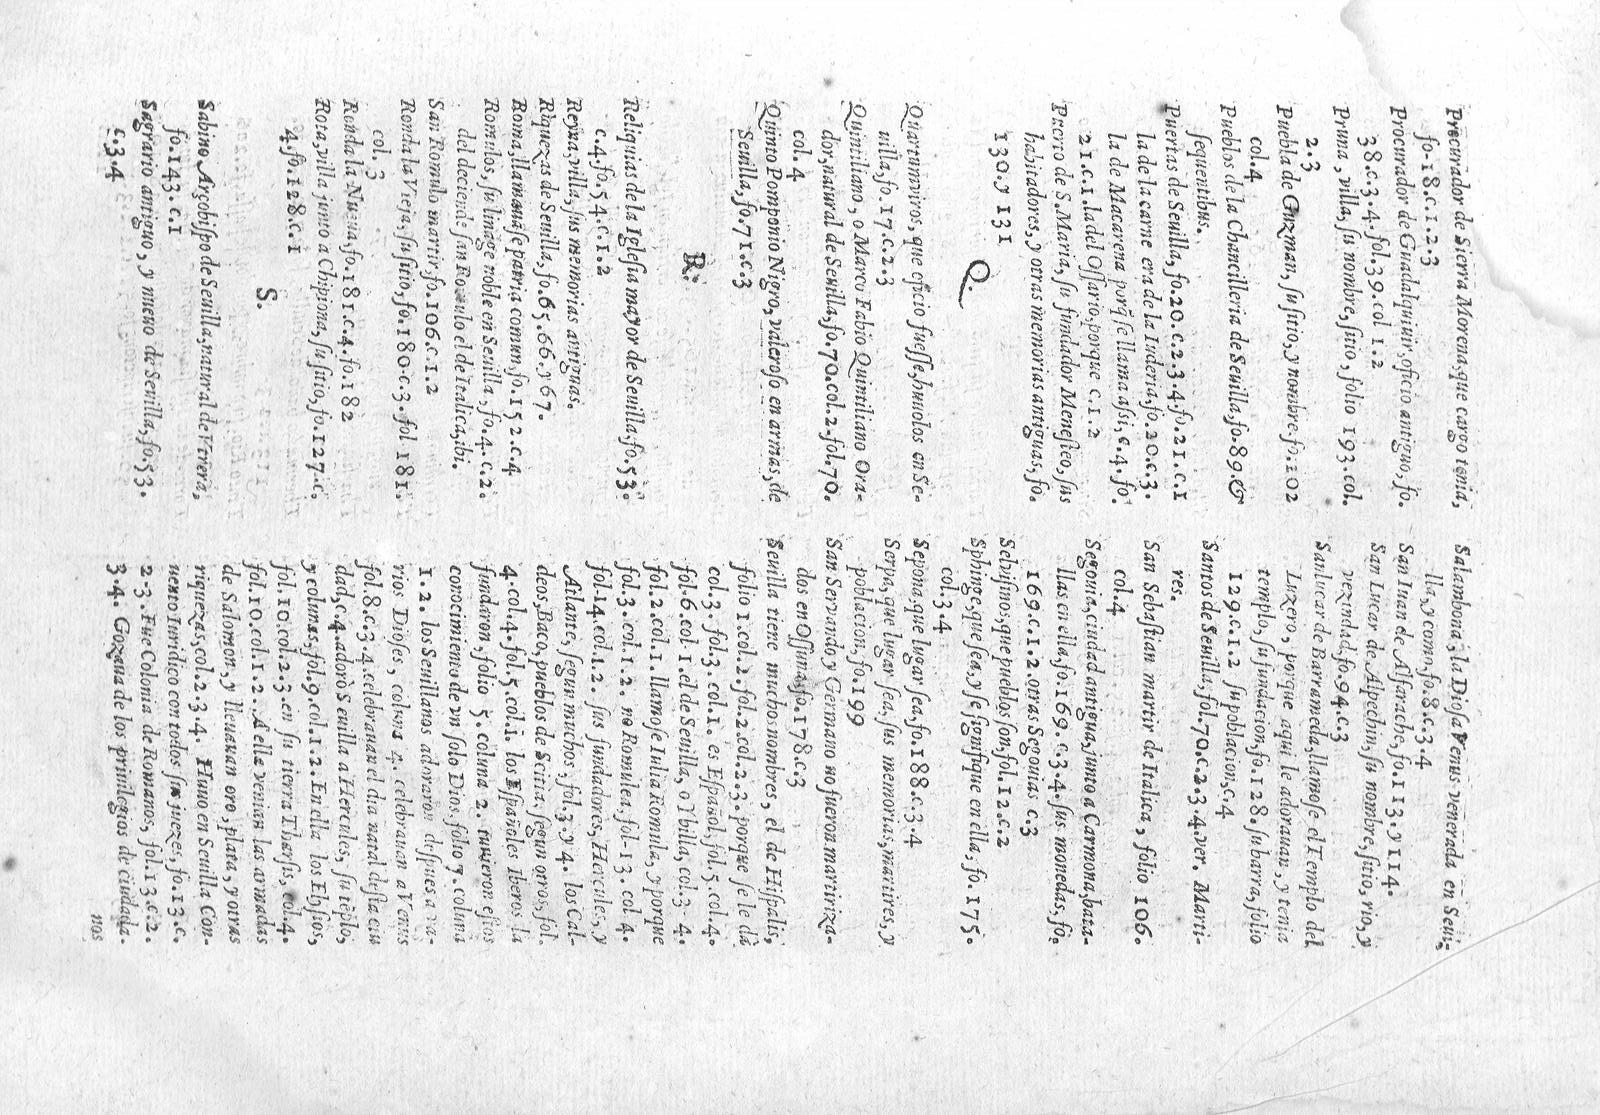 Procurador de Sierra Morena, que cargo tenia,
fo-18.c.1.2.3
Procurador de Guadalquiuir, oficio antiguo, fo.
38.c.3.4. fol.39. col 1.2
Pruna, villa, su nombre, sitio, folio 193. col.
2.3
Puebla de Guzman, su sitio, y nombre. fo. 102
col.4
Pueblos de la Chancilleria de Seuilla, fo. 89. &
sequentibus.
Puertas de Seuilla, fo.20.c.2.3.4.fo.21.c.1
la de la carne era de la Iuderia, fo.20.c.3.
la de Macarena porq̃ se llama assi, c.4. fo.
21.c.1. la del Ossario, porque c.1.2
Puerto de S. Maria, su fundador Menesteo, sus
habitadores, y otras memorias antiguas, fo.
130. y 131
Q.
Quatumviros, que oficio fuesse, huuolos en Se-
uilla, fo.17.c.2.3
Quintiliano, o Marco Fabio Quintiliano Ora-
dor, natural de Seuilla, fo.70.col.2.fol.70.
col.4
Quinto Pomponio Nigro, valeroso en armas, de
Seuilla, fo.71.c.3
R.
Reliquias de la Iglesia mayor de Seuilla. fo.53.
c.4. fo.54.c.1.2
Reyna, villa, sus memorias antiguas.
Riquezas de Seuilla, fo.65.66. y 67.
Roma, llamauase patria comun, fo.15 2.c.4
Romulos, su linage noble en Seuilla, fo.4.c.2.
del deciende san Romulo el de Italica, ibi.
San Romulo martir, fo.106.c.1.2
Ronda la Vieja, su sitio, fo.180.c.3. fol 181.
col. 3
Ronda la Nueua, fo.181.c.4.fo.182
Rota, villa junto a Chipiona, su sitio, fo.127.c.
4.fo.128.c.1
S.
Sabino Arçobispo de Seuilla, natural de Vtrera,
fo.143. c.1
Sagrario antiguo, y nueuo de Seuilla, fo.53.
c.3.4
Salambona, la Diosa Venus venerada en Seui-
lla, y como, fo.8.c.3.4
San Iuan de Alfarache, fo.113. y 114.
San Lucar de Alpechin, su nombre, sitio, rio, y
vezindad, fo.94.c.3
Sanlucar de Barrameda, llamose el Templo del
Luzero, porque aqui le adorauan, y tenia
templo, su fundacion, fo.128. su barra, folio
129.c.1.2 su poblacion, c.4
Santos de Seuilla, fol.70.c.2.3.4. ver. Marti-
res.
San Sebastian martir de Italica, folio 106.
col.4
Segouia, ciudad antigua, junto a Carmona, bata-
llas en ella, fo.169. c.3.4. sus monedas, fo.
169.c.1.2. otras Segouias. c.3
Selbisinos, que pueblos son, fol.12.c.2
Sphinge, que sea, y se signifique en ella, fo.175.
col.3.4
Sepona, que lugar sea, fo.188.c.3.4
Serpa, que lugar sea, sus memorias, martires, y
poblacion, fo.199
San Seruando y Germano no fueron martiriza-
dos en Ossuna, fo.178.c.3
Seuilla tiene muchos nombres, el de Hispalis,
folio 1.col.2.fol.2.col.2.3. porque se le dà
col.3. fol.3. col.1. es Español, fol.5.col.4.
fol.6.col 1. el de Seuilla, o Ybilla, col.3. 4.
fol.2.col.1. llamose Iulia Romula, y porque
fol.3.col.1.2. no Romulea. fol.13. col 4.
fol.14.col.1.2. sus fundadores, Hercules, y
Atlante, segun muchos, fol.3. y 4. los Cal-
deos, Baco, pueblos de Scitia, segun otros, fol.
4.col.4.fol.5.col.1. los Españoles Iberos la
fundaron, folio 5 coluna 2. tuuieron estos
conocimiento de vn solo Dios. folio 7. coluna
1.2. los Seuillanos adoraron despues a va-
rios Dioses, coluna 2. celebrauan a Venus
fol.8.c.3.4.celebrauan el dia natal desta ciu
dad, c.4. adorò Seuilla a Hercules, su tẽplo,
y colunas, fol.9.col.1.2. En ella los Elysios,
fol.10.col.2.3. en su tierra Tharsis, col.4.
fol.10.col.1.2. A ella venian las armadas
de Salomon, y lleuauan oro, plata, y otras
riquezas, col.2.3.4. Huuo en Seuilla Con-
uento Iuridico con todos sus juezes, fo.13.c.
2.3. Fue Colonia de Romanos, fol.13.c.2.
3.4. Gozaua de los priuilegios de ciudada-
nos